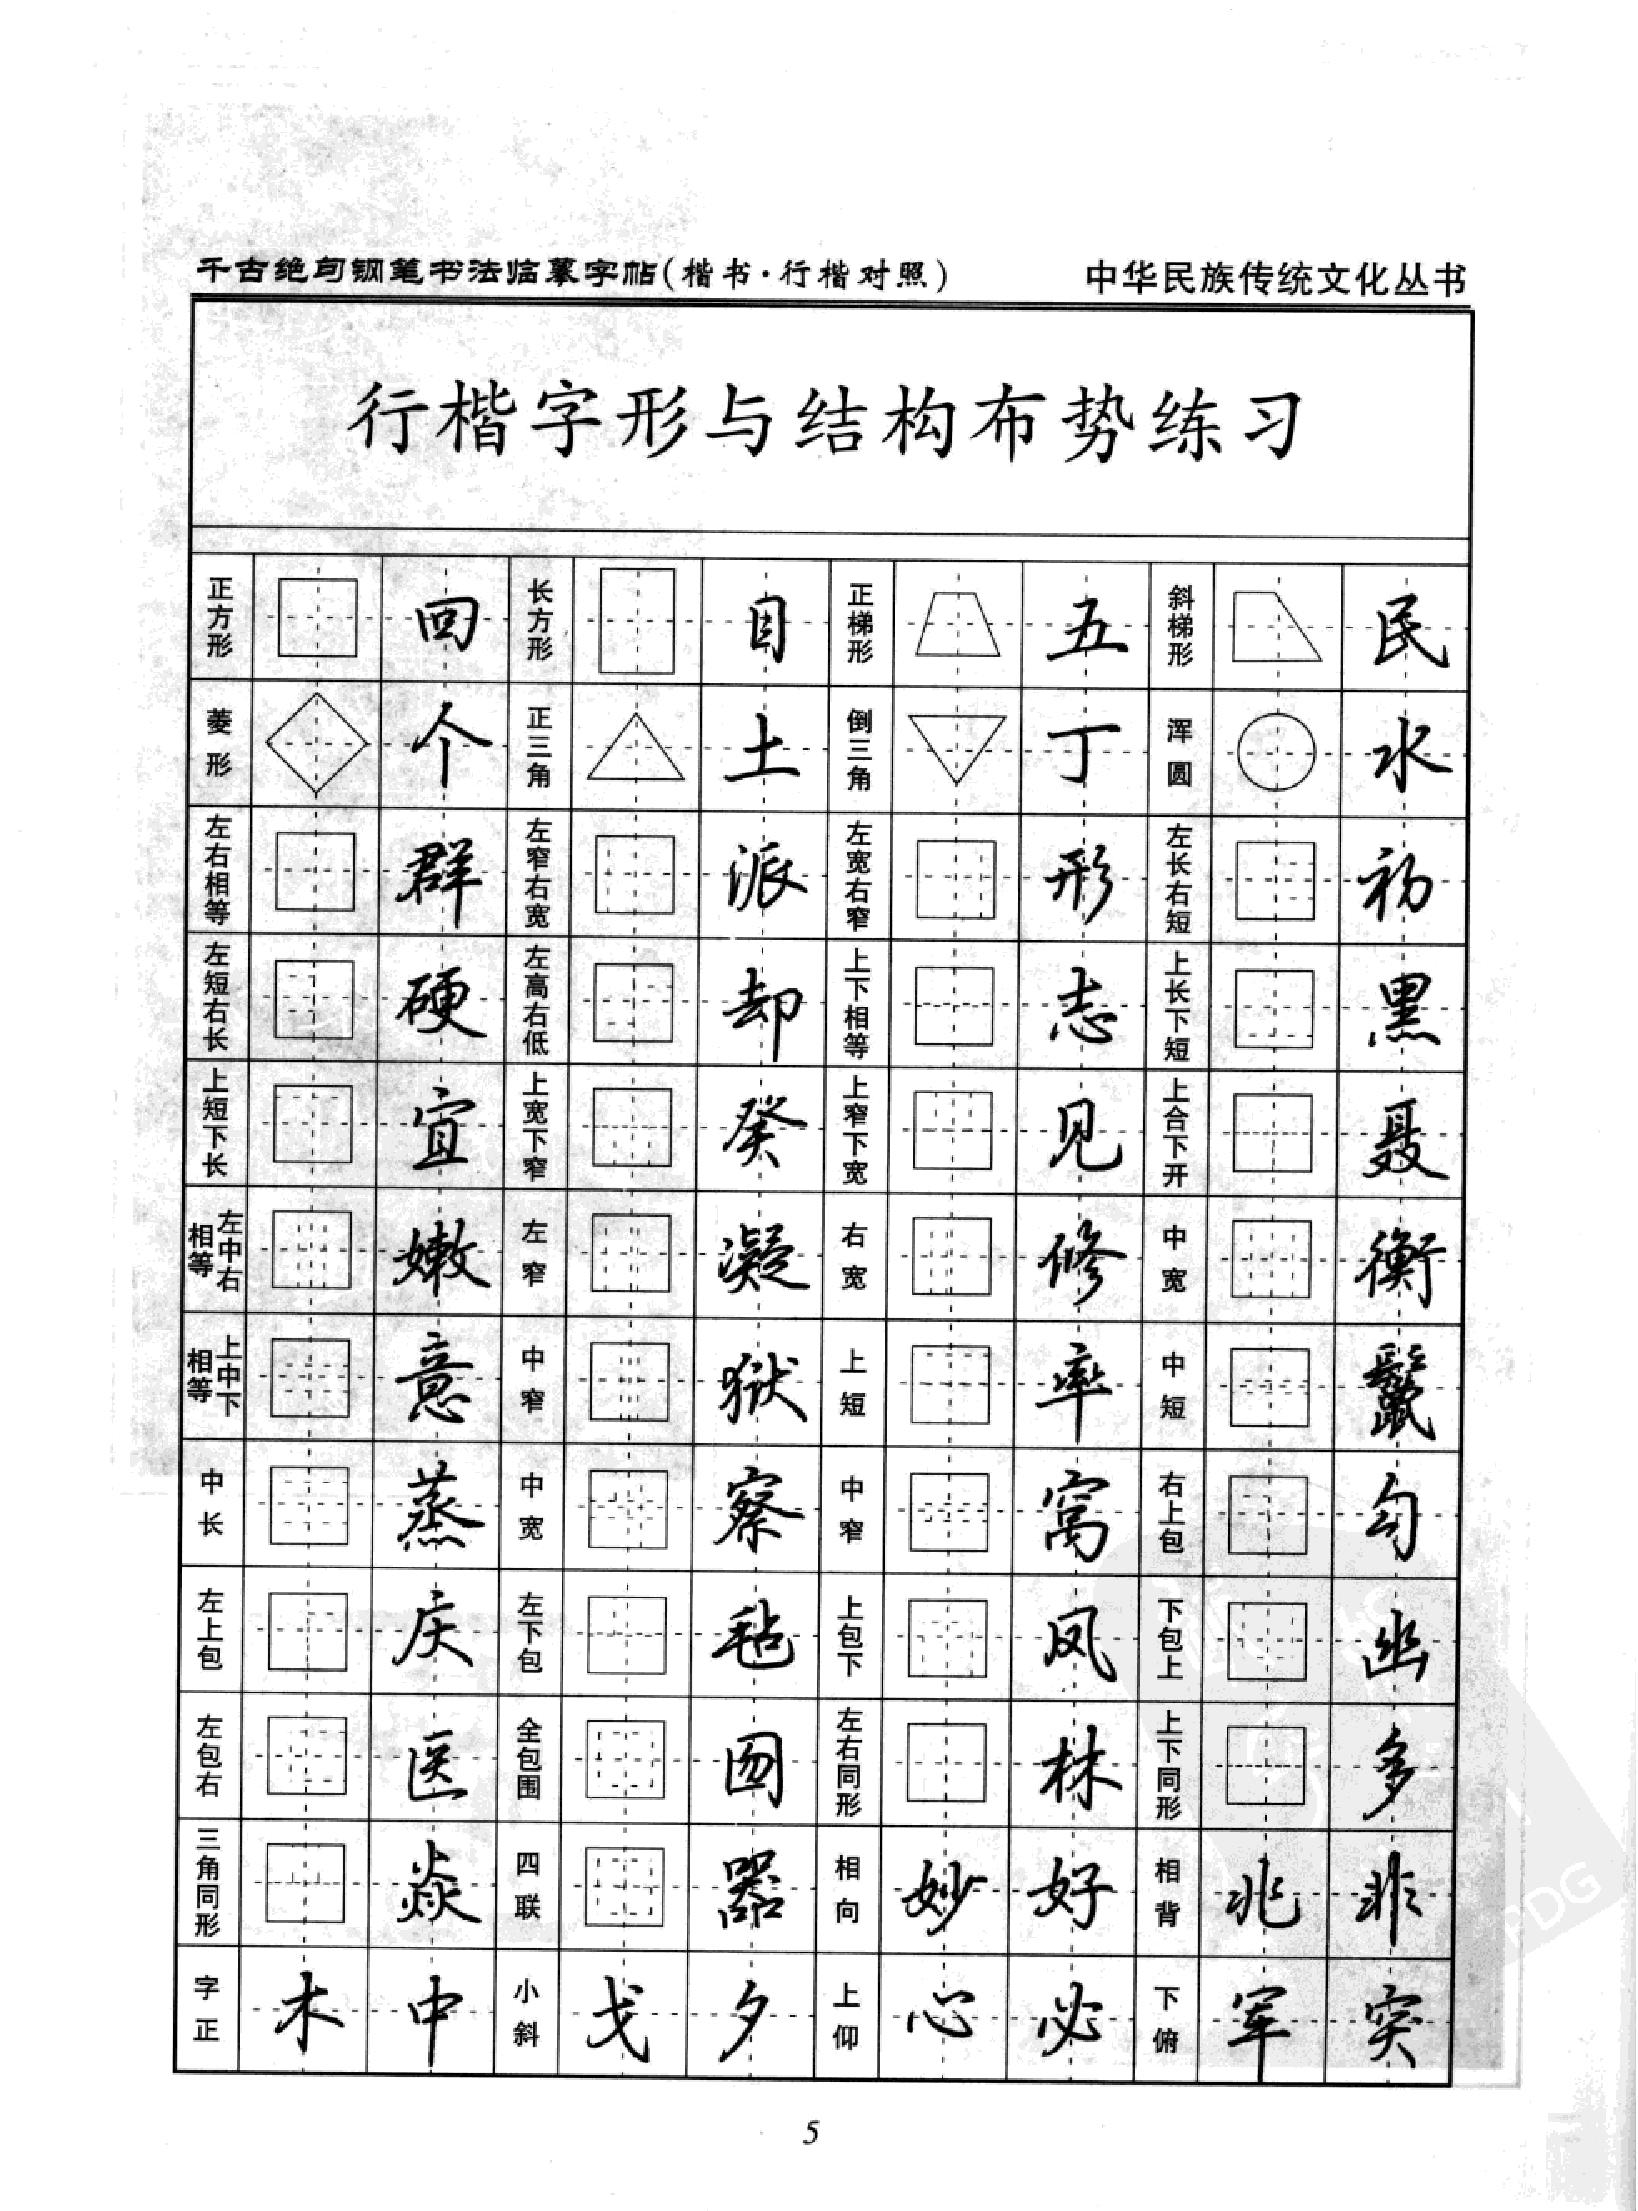 千古绝句钢笔书法临摹字帖(楷书·行楷对照) 中华民族传统文化丛书
行楷字形与结构布势练习
正方形 回 长方形 目 正梯形 五 斜梯形 民
菱形 个 正三角 土 倒三角 丁 浑圆 水
左右相等 群 左窄右宽 派 左宽右窄 形 左长右短 初
左短右长 硬 左高右低 却 上下相等 志 上长下短 黑
上短下长 宜 上宽下窄 癸 上窄下宽 见 上合下开 聂
左中右相等 嫩 左窄 凝 右宽 修 中宽 衡
上中下相等 意 中窄 狱 上短 率 中短 鬣
中长 蒸 中宽 察 中窄 窝 右上包 勾
左上包 庆 左下包 毡 上包下 凤 下包上 幽
左包右 医 全包围 囫 左右同形 林 上下同形 多
三角同形 焱 四联 器 相向 妙 好 相背 兆 非
字正 木 中 小斜 戈 夕 上仰 心 必 下俯 军 突
5
PDG